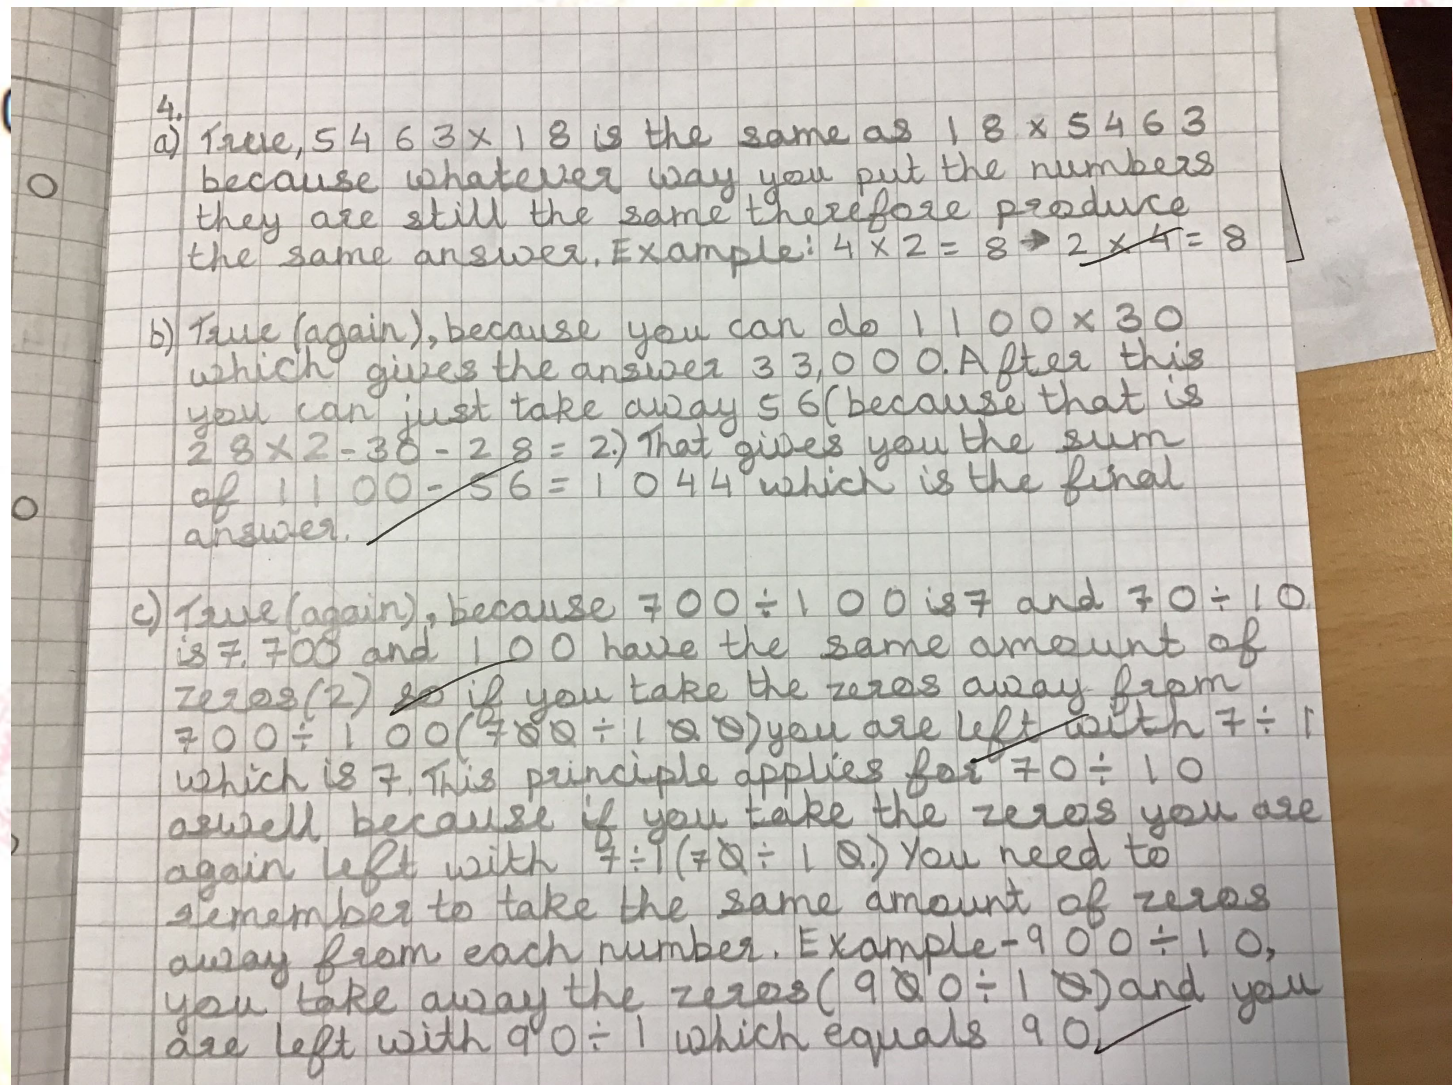 4.
a) True, 5463 x 18 is the same as 18 x 5463
because whatever way you put the numbers
they are still the same therefore produce
the same answer. Example: 4 x 2 = 8 → 2 x 4 = 8
b) True (again), because you can do 1100 x 30
which gives the answer 33,000. After this
you can just take away 56 (because that is
28 x 2 - 30 - 28 = 2.) That gives you the sum
of 1100 - 56 = 1044 which is the final
answer.
c) True (again), because 700 ÷ 100 is 7 and 70 ÷ 10
is 7. 700 and 100 have the same amount of
zeros (2) so if you take the zeros away from
700 ÷ 100 (700 ÷ 100) you are left with 7 ÷ 1
which is 7. This principle applies for 70 ÷ 10
aswell because if you take the zeros you are
again left with 7 ÷ 1 (70 ÷ 10.) You need to
remember to take the same amount of zeros
away from each number. Example - 900 ÷ 10,
you take away the zeros (900 ÷ 10) and you
are left with 90 ÷ 1 which equals 90.